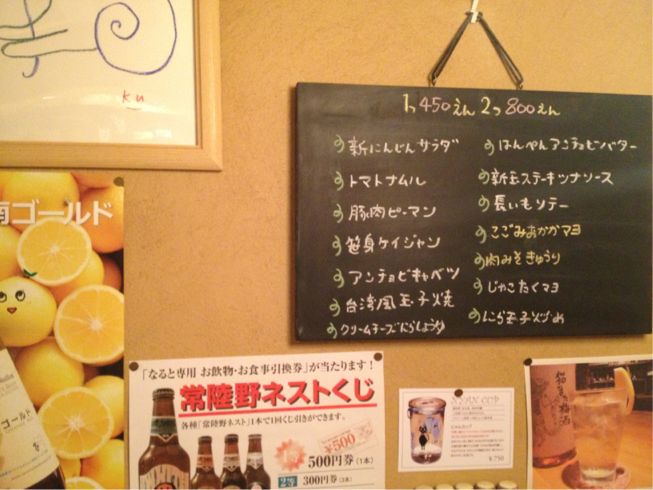 ku
南ゴールド
1つ450えん 2つ800えん
新にんじんサラダ
トマトナムル
豚肉ピーマン
笹身ケイジャン
アンチョビキャベツ
台湾風玉子焼
クリームチーズにらしょうゆ
はんぺんアンチョビバター
新玉ステーキツナソース
長いもソテー
こごみおかかマヨ
肉みそきゅうり
じゃこたくマヨ
にら玉子炒め
「なると専用 お飲物・お食事引換券」が当たります!
常陸野ネストくじ
各種「常陸野ネスト」1本で1回くじ引きができます。
¥500
500円券(1本)
2等 300円券
CUP
¥750
梅酒